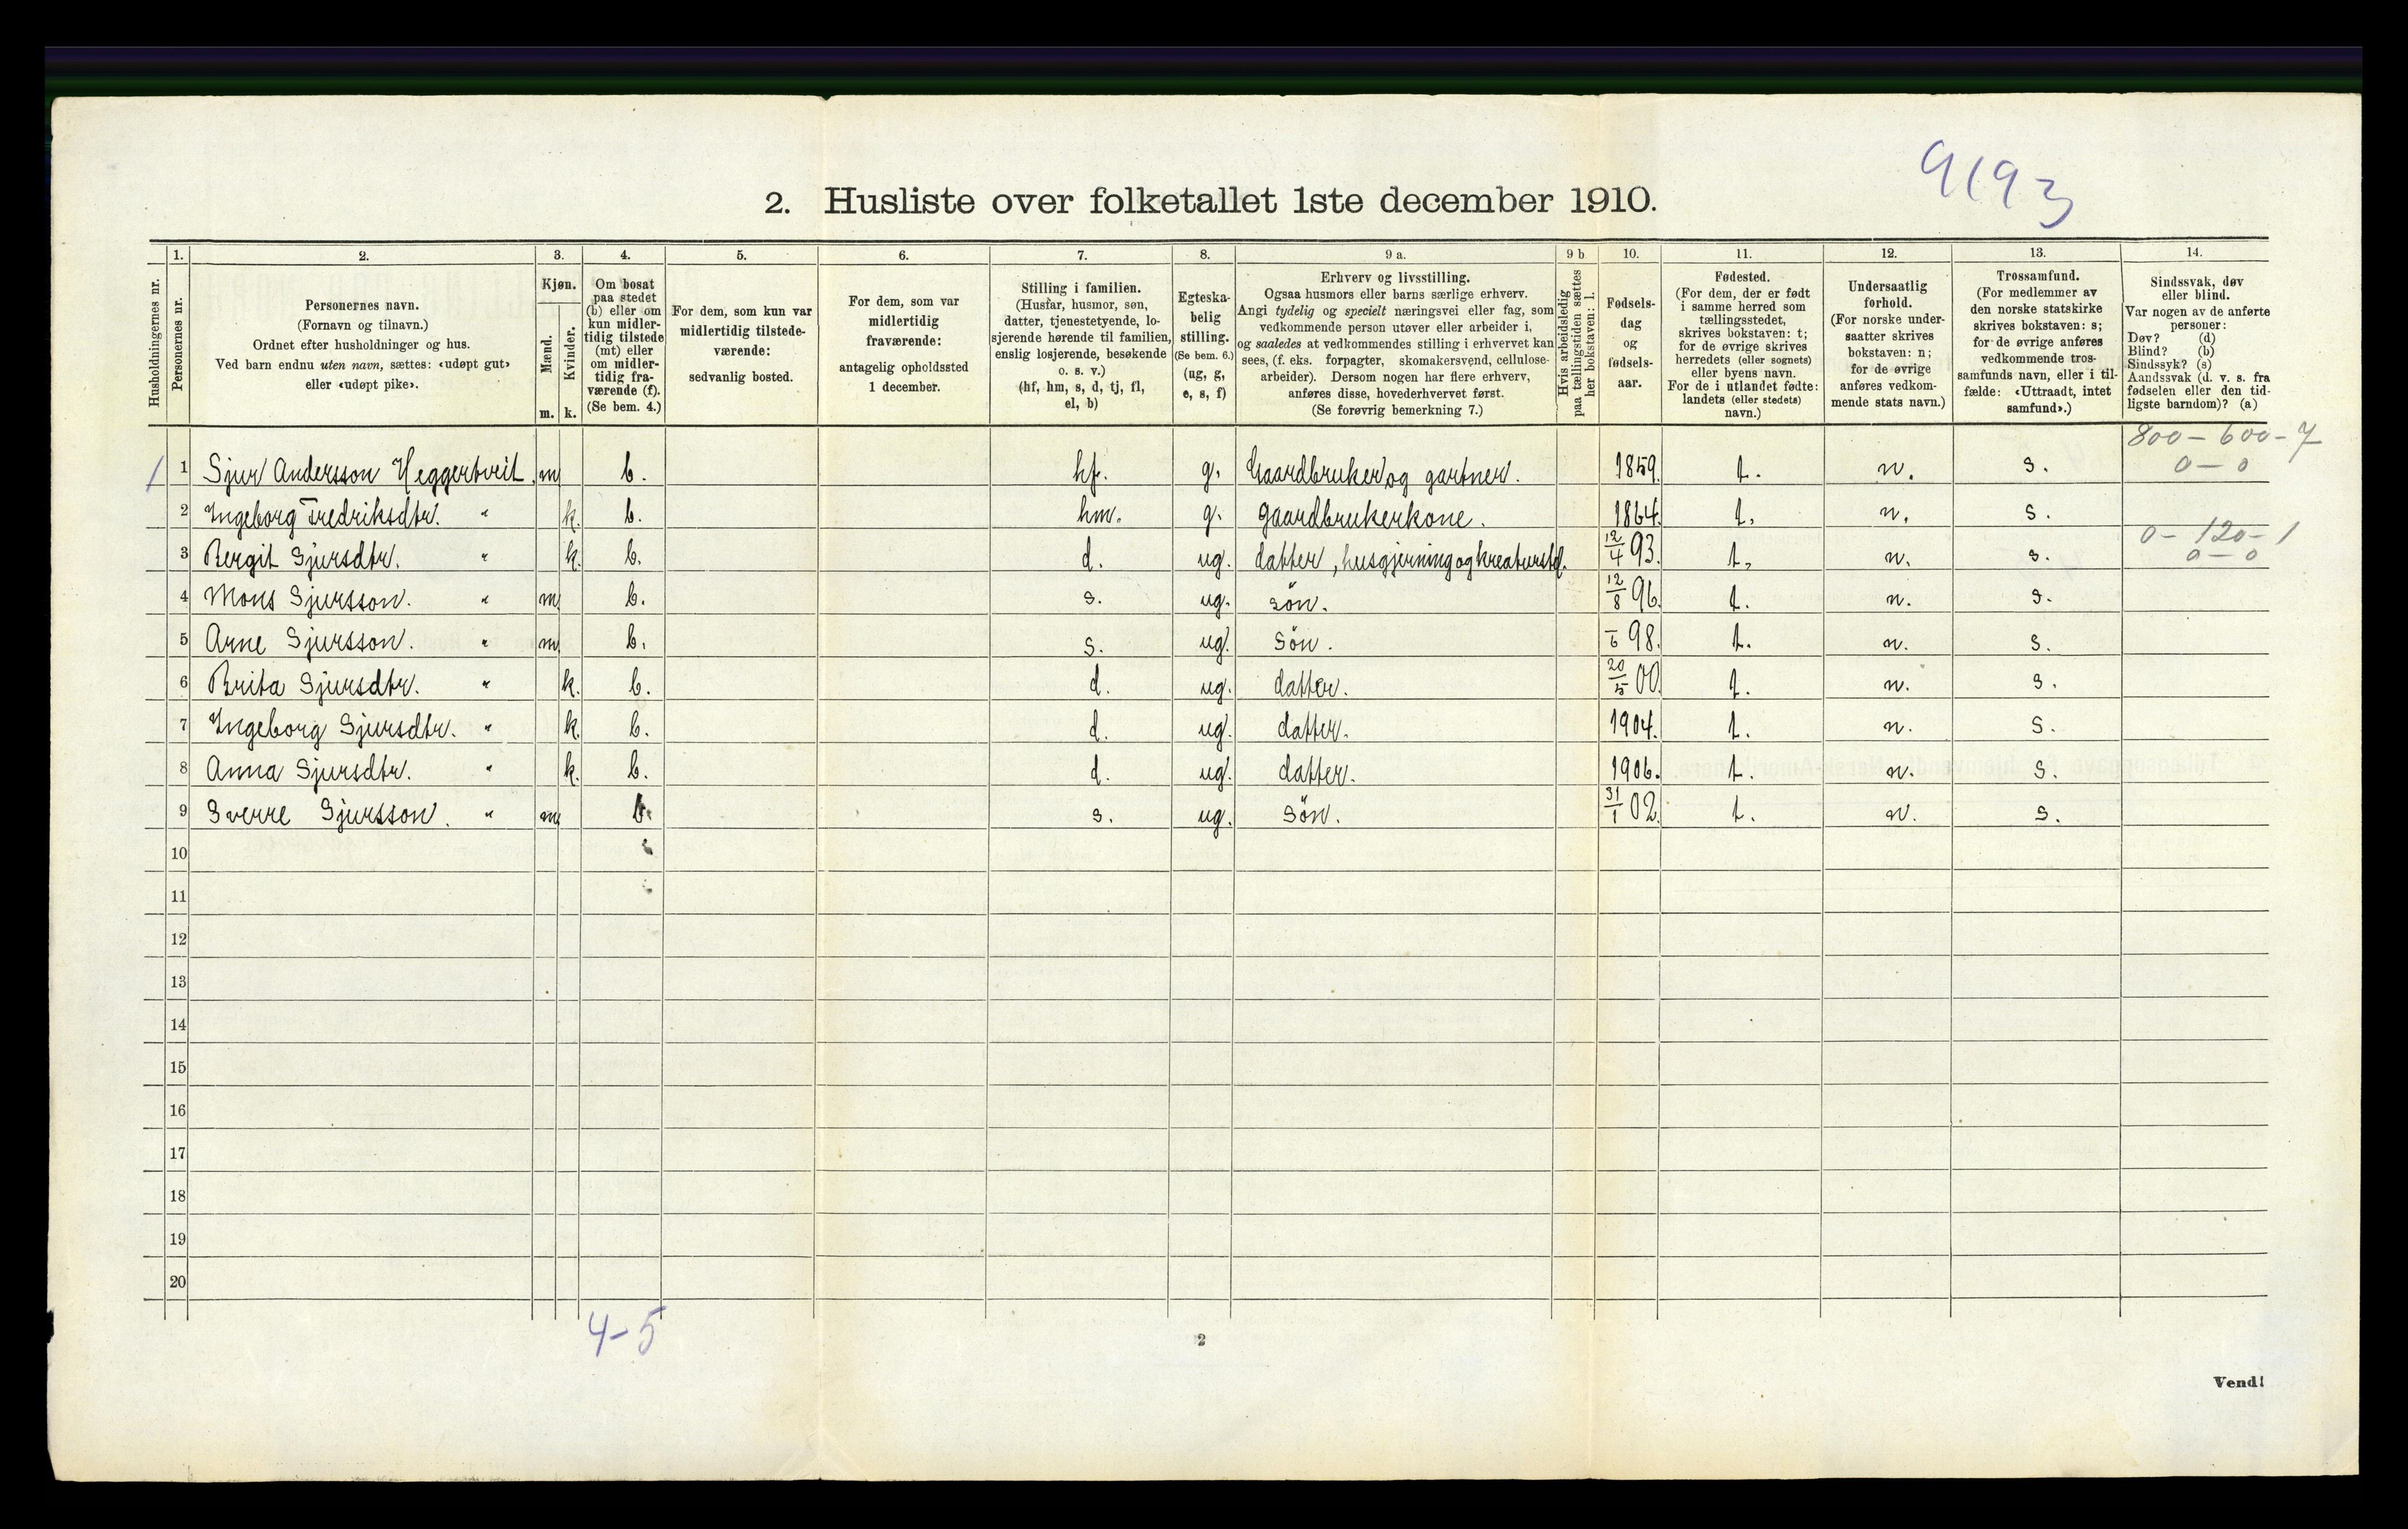 9193
2. Husliste over folketallet 1ste december 1910.
Husholdningernes nr.
1.
Personernes nr.
2.
Personernes navn.
(Fornavn og tilnavn.)
Ordnet efter husholdninger og hus.
Ved barn endnu uten navn, sættes: «udøpt gut»
eller «udøpt pike».
3.
Kjøn.
Mænd.
Kvinder.
m.
k.
4.
Om bosat
paa stedet
(b) eller om
kun midler-
tidig tilstede
(mt) eller
om midler-
tidig fra-
værende (f).
(Se bem. 4.)
5.
For dem, som kun var
midlertidig tilstede-
værende:
sedvanlig bosted.
6.
For dem, som var
midlertidig
fraværende:
antagelig opholdssted
1 december.
7.
Stilling i familien.
(Husfar, husmor, søn,
datter, tjenestetyende, lo-
sjerende hørende til familien,
enslig losjerende, besøkende
o. s. v.)
(hf, hm, s, d, tj, fl,
el, b)
8.
Egteska-
belig
stilling.
(Se bem. 6.)
(ug, g,
e, s, f)
9 a.
Erhverv og livsstilling.
Ogsaa husmors eller barns særlige erhverv.
Angi tydelig og specielt næringsvei eller fag, som
vedkommende person utøver eller arbeider i,
og saaledes at vedkommendes stilling i erhvervet kan
sees, (f. eks. forpagter, skomakersvend, cellulose-
arbeider). Dersom nogen har flere erhverv,
anføres disse, hovederhvervet først.
(Se forøvrig bemerkning 7.)
9 b
Hvis arbeidsledig
paa tællingstiden sættes
her bokstaven: l.
10.
Fødsels-
dag
og
fødsels-
aar.
11.
Fødested.
(For dem, der er født
i samme herred som
tællingsstedet,
skrives bokstaven: t;
for de øvrige skrives
herredets (eller sognets)
eller byens navn.
For de i utlandet fødte:
landets (eller stedets)
navn.)
12.
Undersaatlig
forhold.
(For norske under-
saatter skrives
bokstaven: n;
for de øvrige
anføres vedkom-
mende stats navn.)
13.
Trossamfund.
(For medlemmer av
den norske statskirke
skrives bokstaven: s;
for de øvrige anføres
vedkommende tros-
samfunds navn, eller i til-
fælde: «Uttraadt, intet
samfund».)
14.
Sindssvak, døv
eller blind.
Var nogen av de anførte
personer:
Døv? (d)
Blind? (b)
Sindssyk? (s)
Aandssvak (d. v. s. fra
fødselen eller den tid-
ligste barndom)? (a)
800 – 600 – 7
1 1 Sjur Andersson Heggertveit. m b. hf. g. Gaardbruker og gartner. 1859. t. n. s. 0 – 0
2 Ingeborg Fredriksdtr. " k. b. hm. g. gaardbrukerkone. 1864. t. n. s.
0 – 120 – 1
3 Bergit Sjursdtr. " k. b. d. ug. datter, husgjerning og kreaturstel. 12/4 93. t. n. s. 0 – 0
4 Mons Sjursson. " m b. s. ug. søn. 12/8 96. t. n. s.
5 Arne Sjursson. " m b. s. ug. Søn. –/6 98. t. n. s.
6 Brita Sjursdtr. " k. b. d. ug. datter. 20/5 00. t. n. s.
7 Ingeborg Sjursdtr. " k. b. d. ug. datter. 1904. t. n. s.
8 Anna Sjursdtr. " k. b. d. ug. datter. 1906. t. n. s.
9 Sverre Sjursson. " m b. s. ug. Søn. 31/1 02. t. n. s.
10
11
12
13
14
15
16
17
18
19
20
4–5
2
Vend!